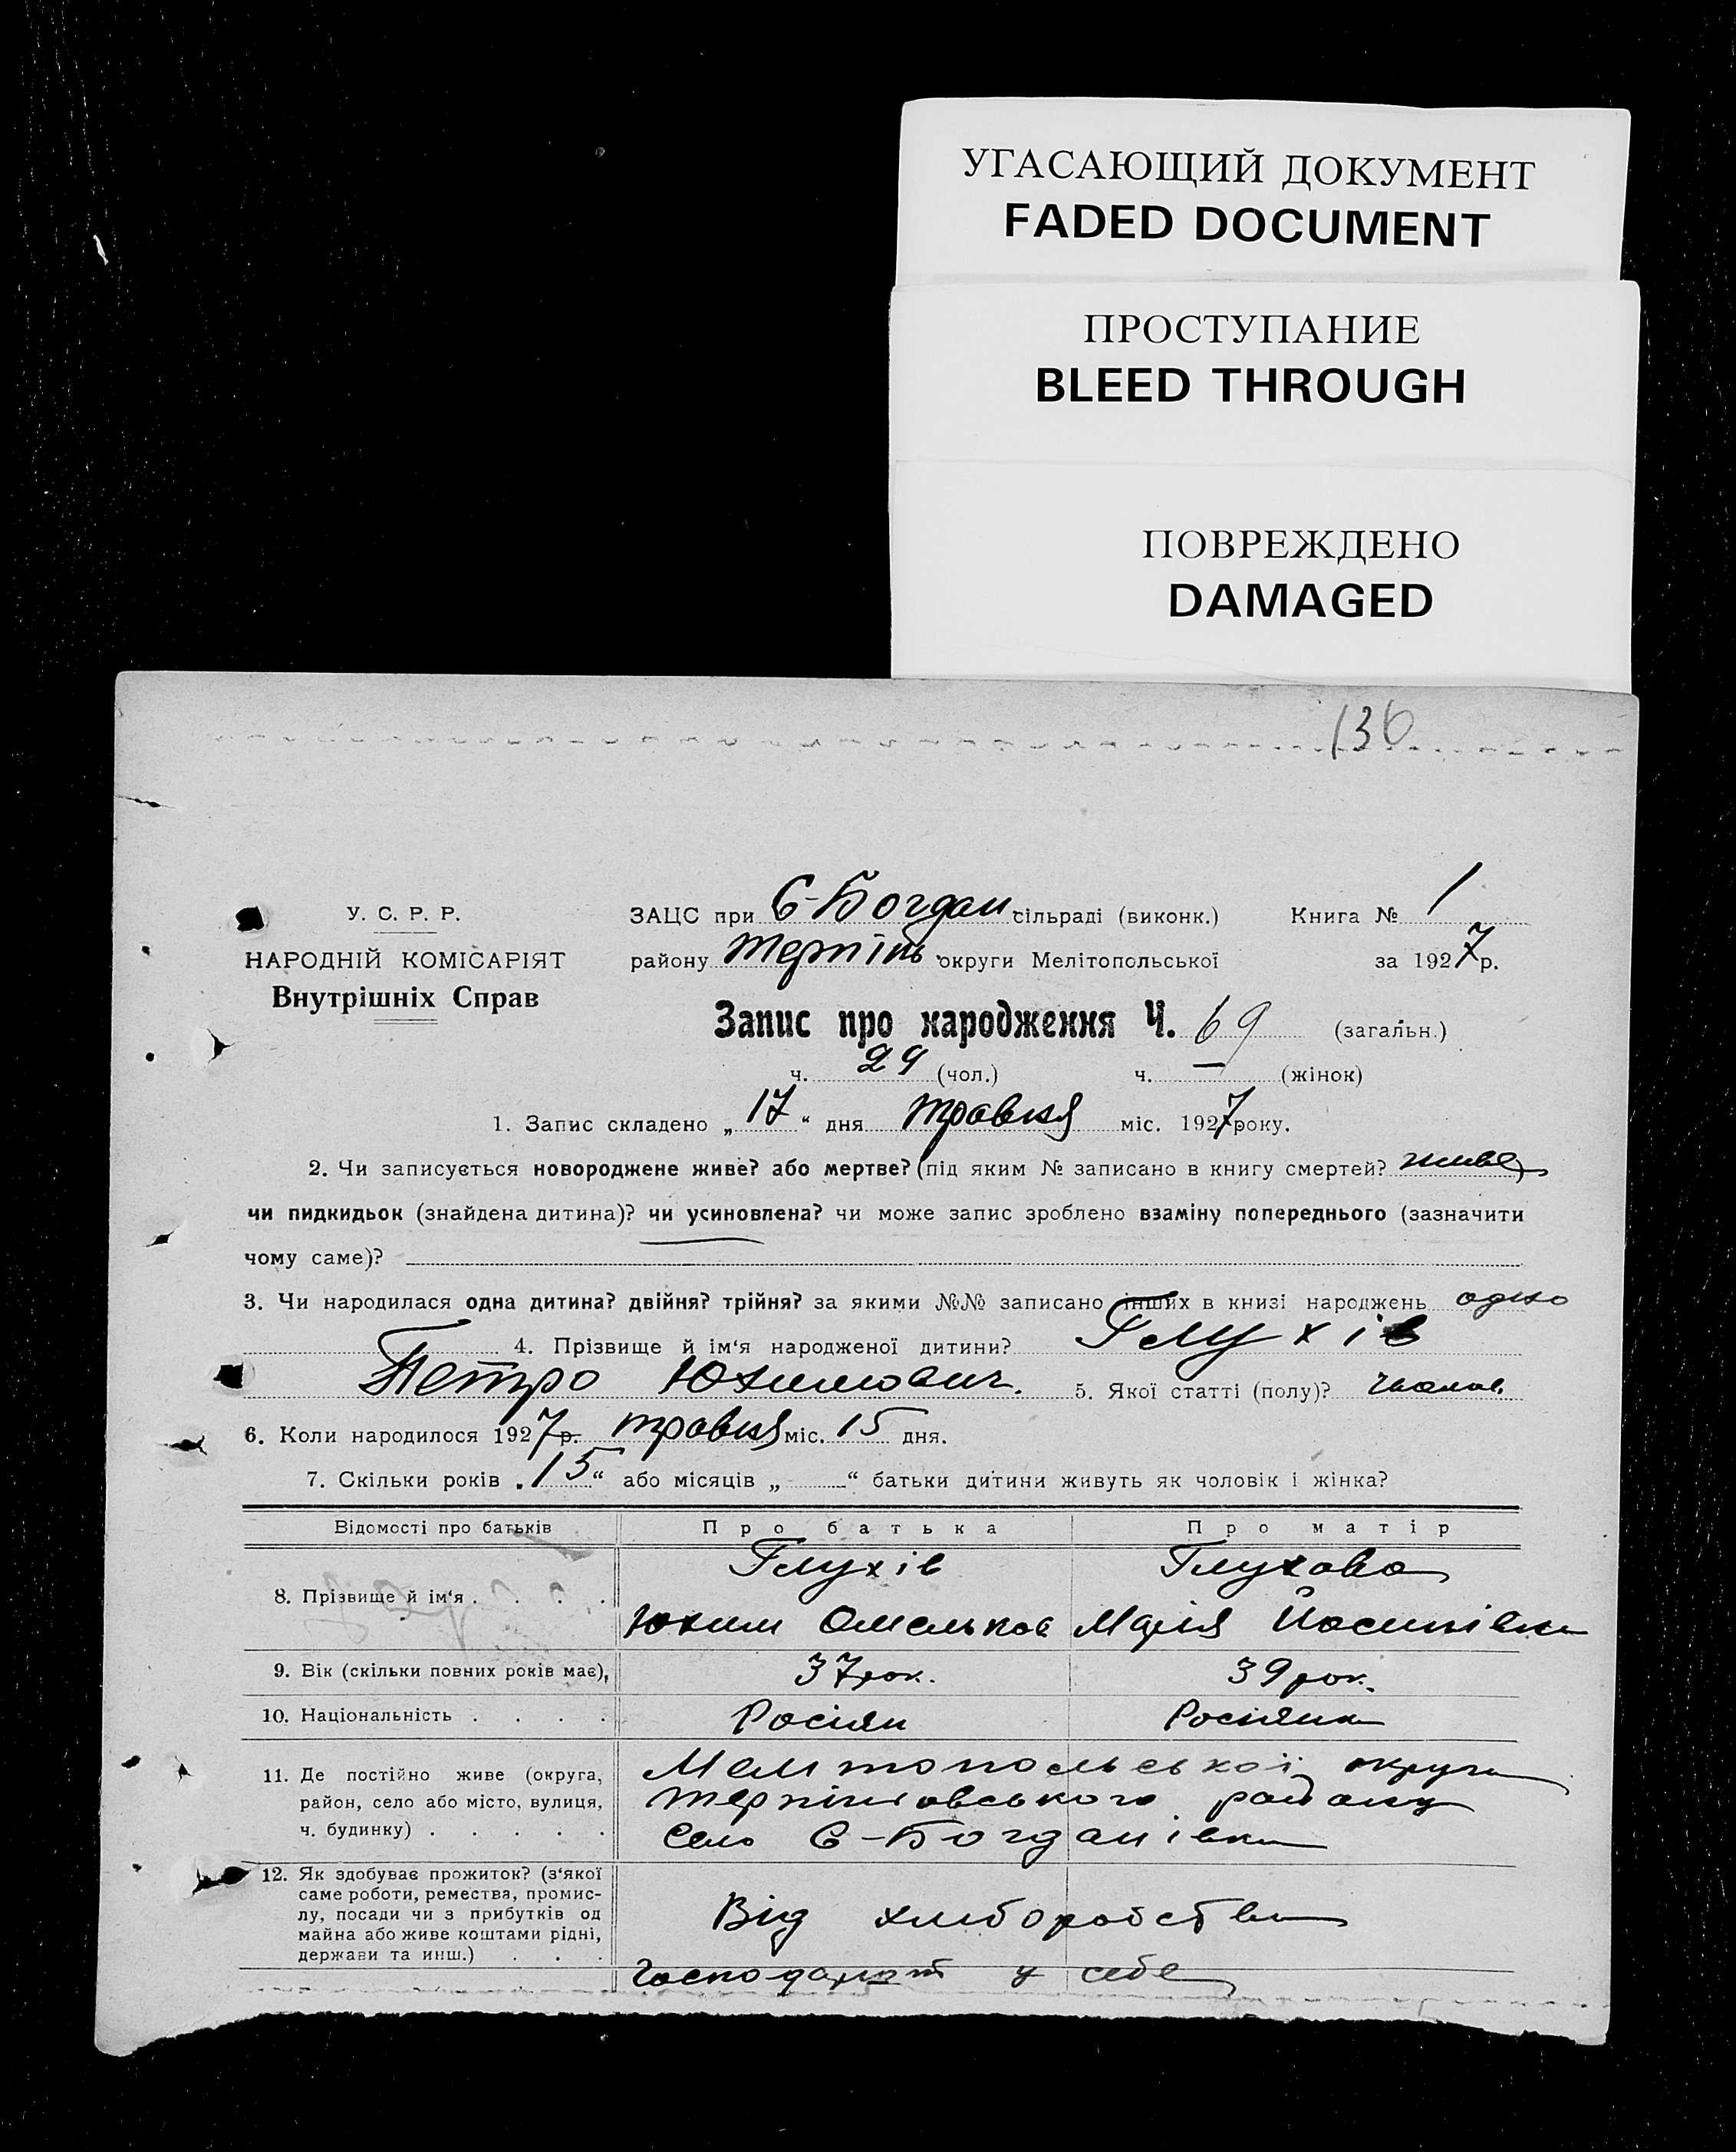 УГАСАЮЩИЙ ДОКУМЕНТ
FADED DOCUMENT
ПРОСТУПАНИЕ
BLEED THROUGH
ПОВРЕЖДЕНО
DAMAGED
136
У. С. Р. Р.
НАРОДНІЙ КОМІСАРІЯТ
Внутрішніх Справ
ЗАЦС при Є-Богдан сільраді (виконк.) Книга № 1
району Терпінь округи Мелітопольської за 1927 р.
Запис про народження Ч. 69 (загальн.)
ч. 29 (чол.) ч. — (жінок)
1. Запис складено „17“ дня травня міс. 1927 року.
2. Чи записується новороджене живе? або мертве? (під яким № записано в книгу смертей? живе)
чи пидкидьок (знайдена дитина)? чи усиновлена? чи може запис зроблено взаміну попереднього (зазначити
чому саме)?
3. Чи народилася одна дитина? двійня? трійня? за якими №№ записано інших в книзі народжень одно
4. Прізвище й ім'я народженої дитини? Глухів
Петро Юхимович. 5. Якої статті (полу)? чолов.
6. Коли народилося 1927 р. травня міс. 15 дня.
7. Скільки років „15“ або місяців „ “ батьки дитини живуть як чоловік і жінка?
Відомості про батьків Про батька Про матір
8. Прізвище й ім'я . . . . Глухів Глухова
Юхим Омельков Марія Йосипівна
9. Вік (скільки повних років має), 37 рок. 39 рок.
10. Національність . . . . Росіян Росіянка
11. Де постійно живе (округа, район, село або місто, вулиця, ч. будинку) . . . . . Мелітопольської округи
Терпіновського району
село Є-Богданівка
12. Як здобуває прожиток? (з'якої саме роботи, ремества, промислу, посади чи з прибутків од майна або живе коштами рідні, держави та инш.) . . . Від хліборобства
господарют у себе